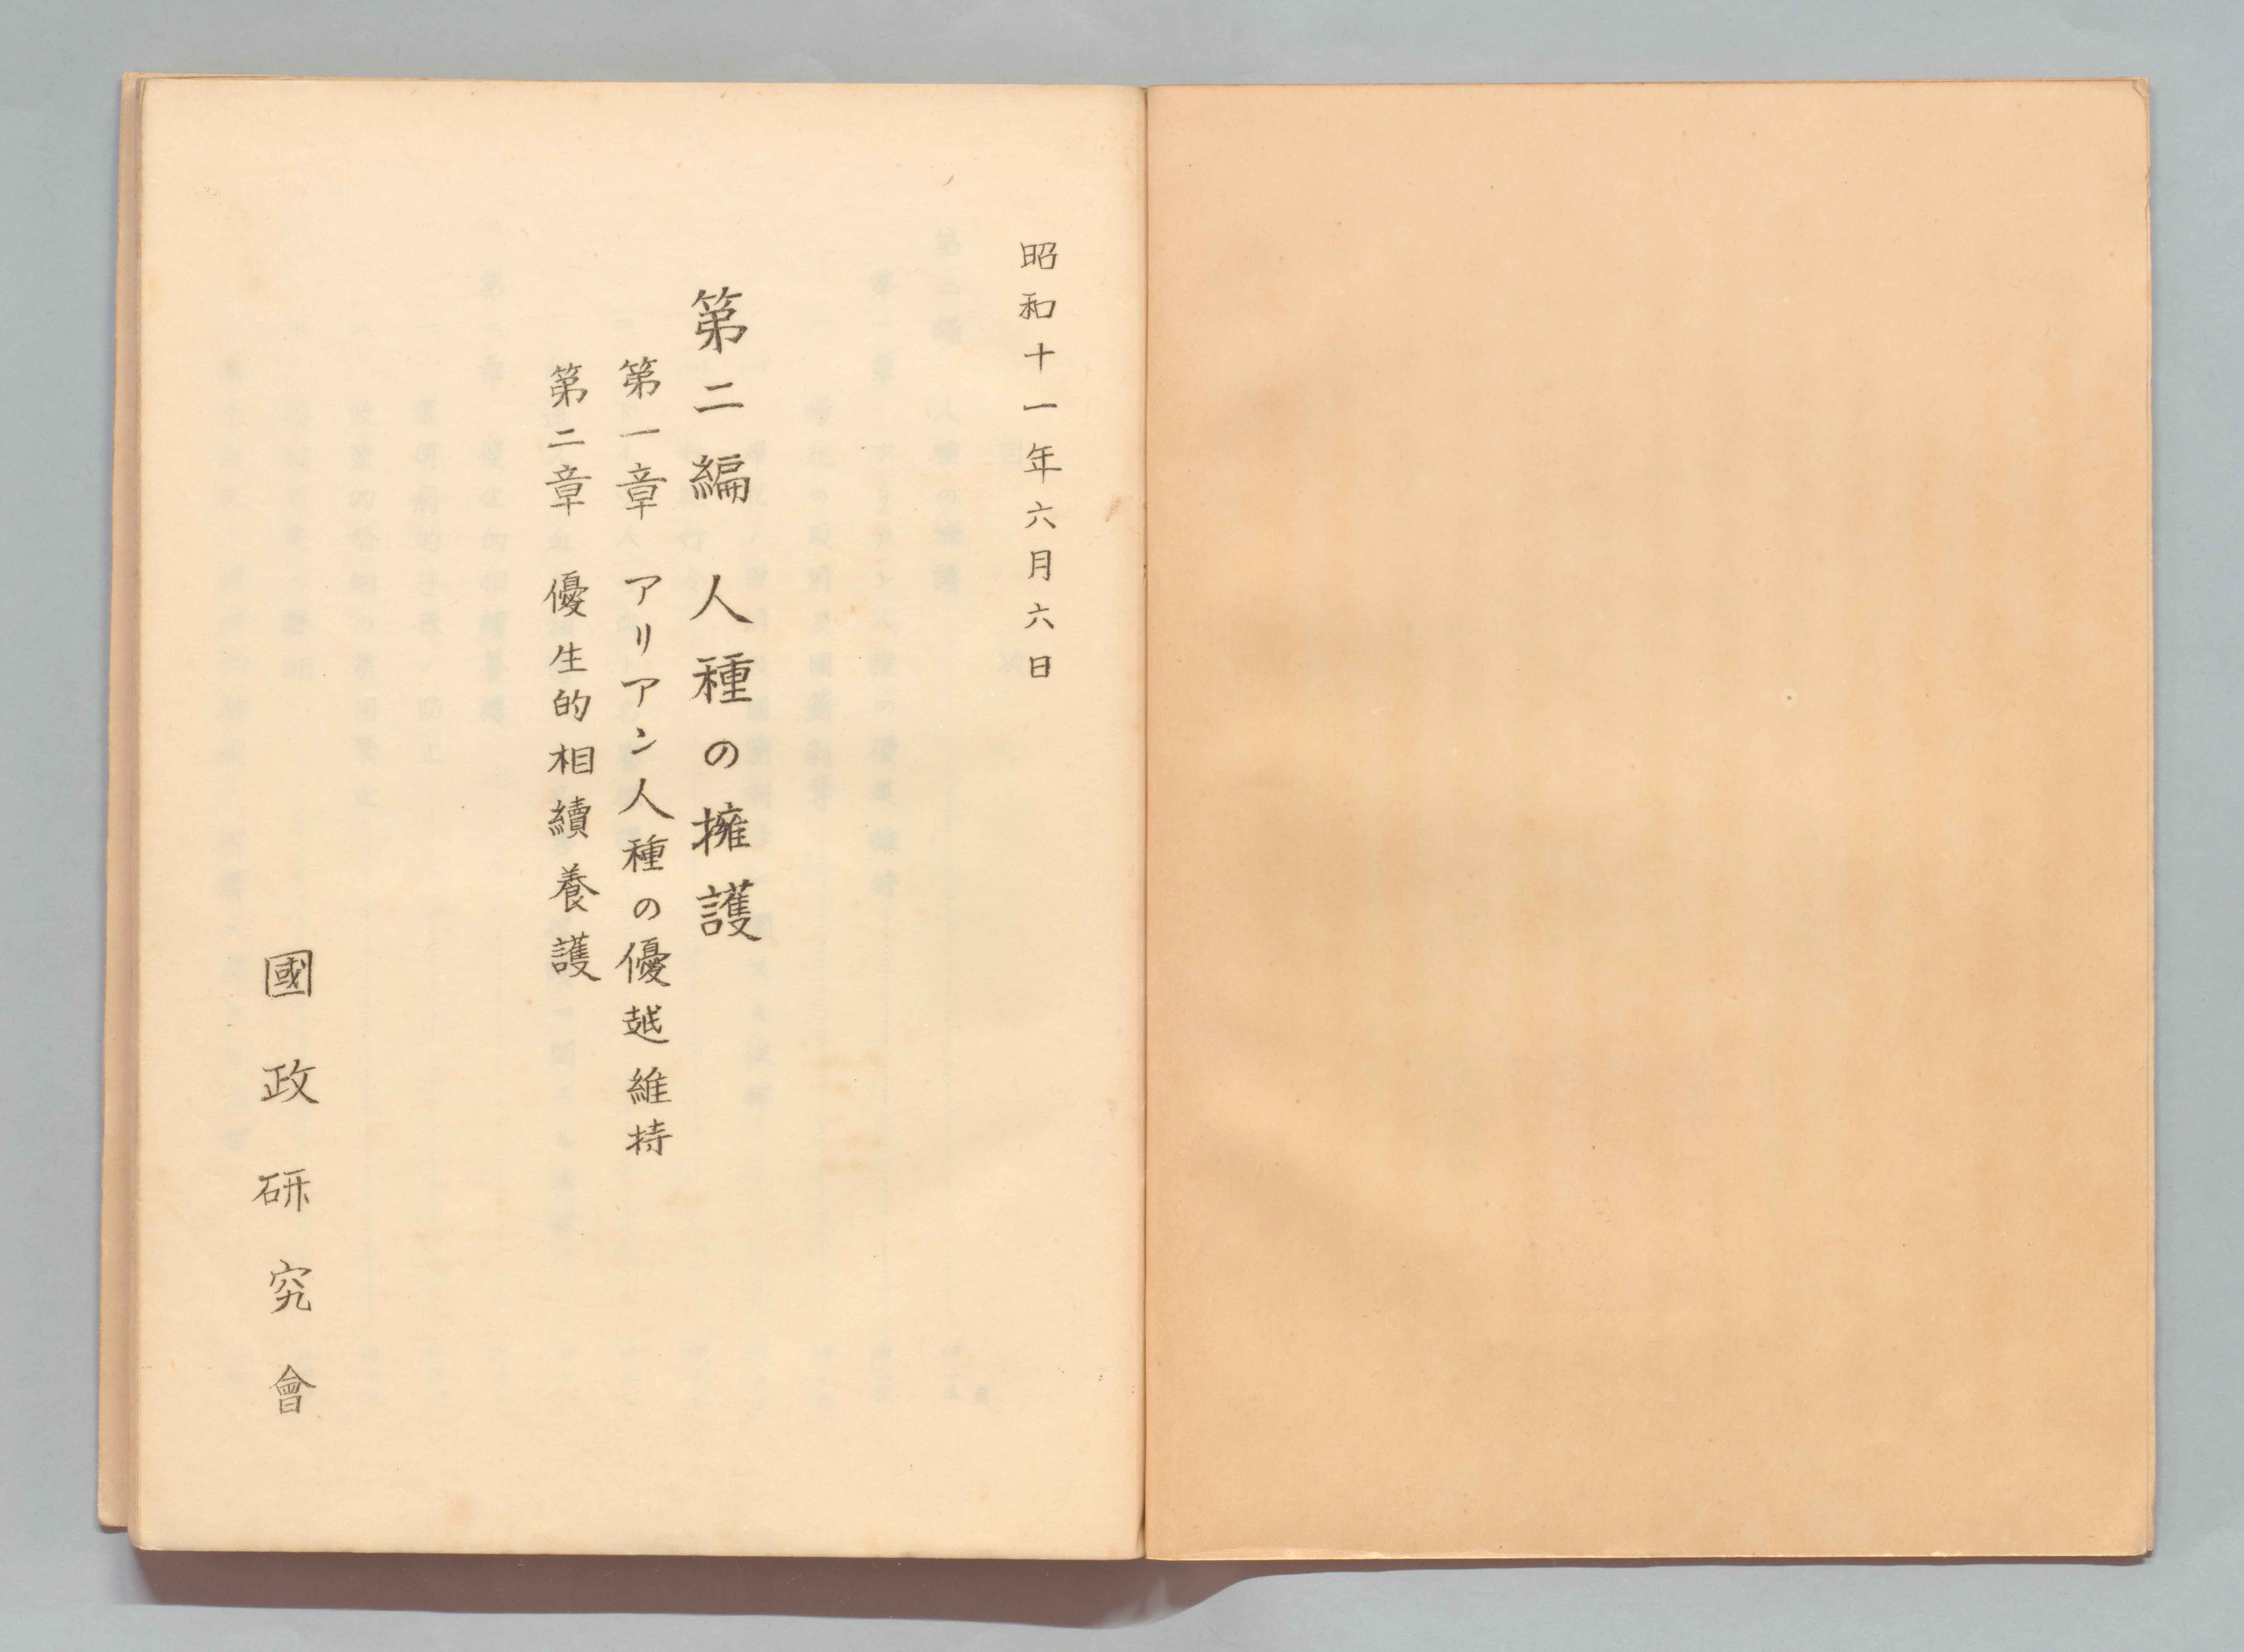 昭和十一年六月六日
第二編 人種の擁護
第一章 アリアン人種の優越維持
第二章 優生的相續養護
國政研究會